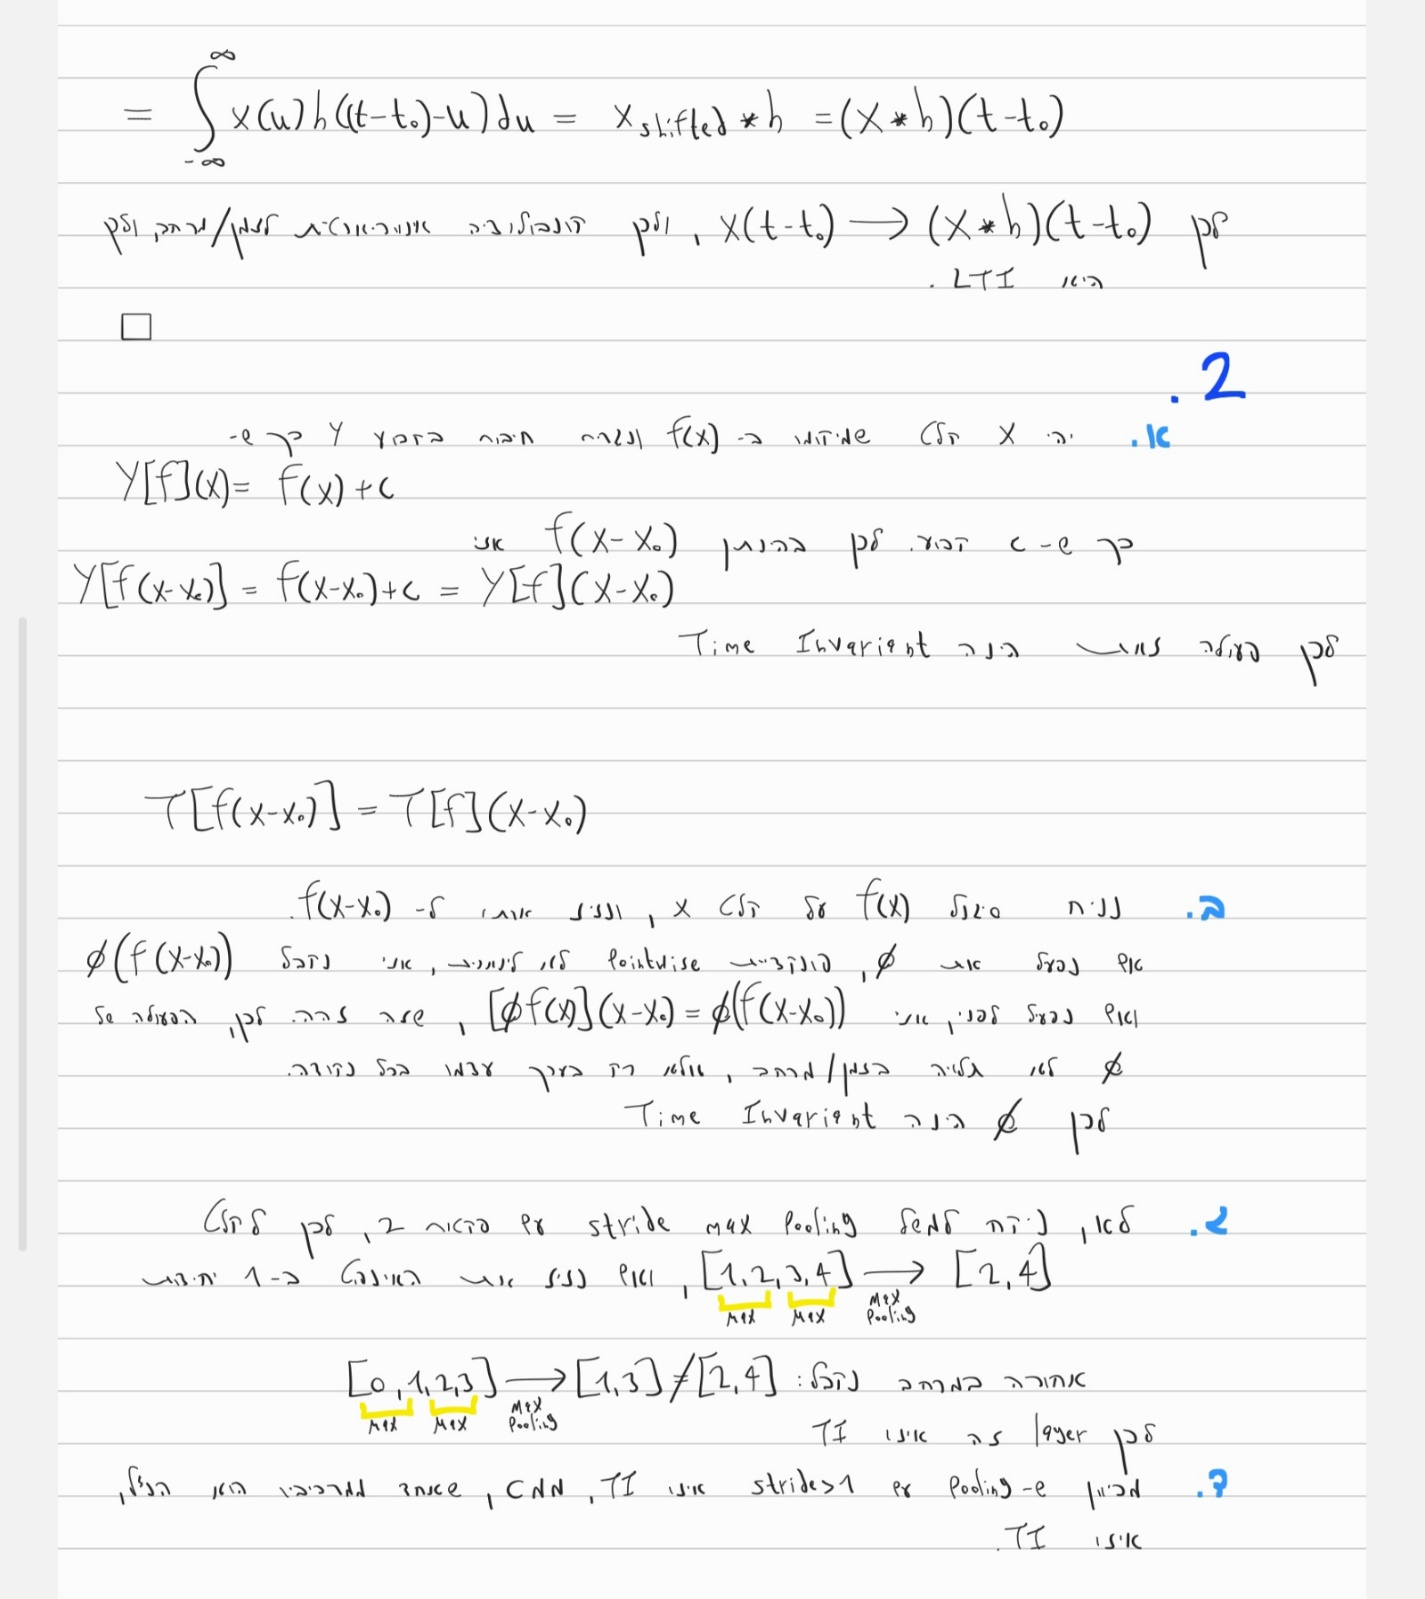 = ∫_{-∞}^{∞} x(u)h((t-t₀)-u)du = x_shifted * h = (x*h)(t-t₀)
לכן x(t-t₀) → (x*h)(t-t₀), ולכן קונבולוציה אינווריאנטית לזמן/מרחב, ולכן
היא LTI.
□
2.
א. יהי X קלט שמיוצג ב- f(x) ונגדיר חיבור בקבוע Y כך ש-
Y[f](x) = f(x)+c
כך ש-c קבוע. לכן בהינתן f(x-x₀) אזי
Y[f(x-x₀)] = f(x-x₀)+c = Y[f](x-x₀)
לכן פעולה זאת הינה Time Invarient
T[f(x-x₀)] = T[f](x-x₀)
ב. נניח סיגנל f(x) על קלט x, ונזיז אותו ל- f(x-x₀).
אם נפעיל את ϕ, פונקציית Pointwise לא לינארית, אזי נקבל ϕ(f(x-x₀))
ואם נפעיל לפני, אזי [ϕf(x)](x-x₀) = ϕ(f(x-x₀)), שזה זהה. לכן, הפעולה של
ϕ לא תלויה בזמן/מרחב, אלא רק בערך עצמו בכל נקודה.
לכן ϕ הינה Time Invarient
ג. לא, ניקח למשל max Pooling עם stride בגודל 2, לכן לקלט
[1,2,3,4] → [2,4], ואם נזיז את האינפוט ב-1 יחידות
max max Max Pooling
אחורה במרחב נקבל: [0,1,2,3] → [1,3] ≠ [2,4]
max max Max Pooling
לכן layer זה אינו TI
ד. מכיוון ש-Pooling עם stride>1 אינו TI, CNN, שאחד ממרכיביו הוא הנ"ל,
אינו TI.